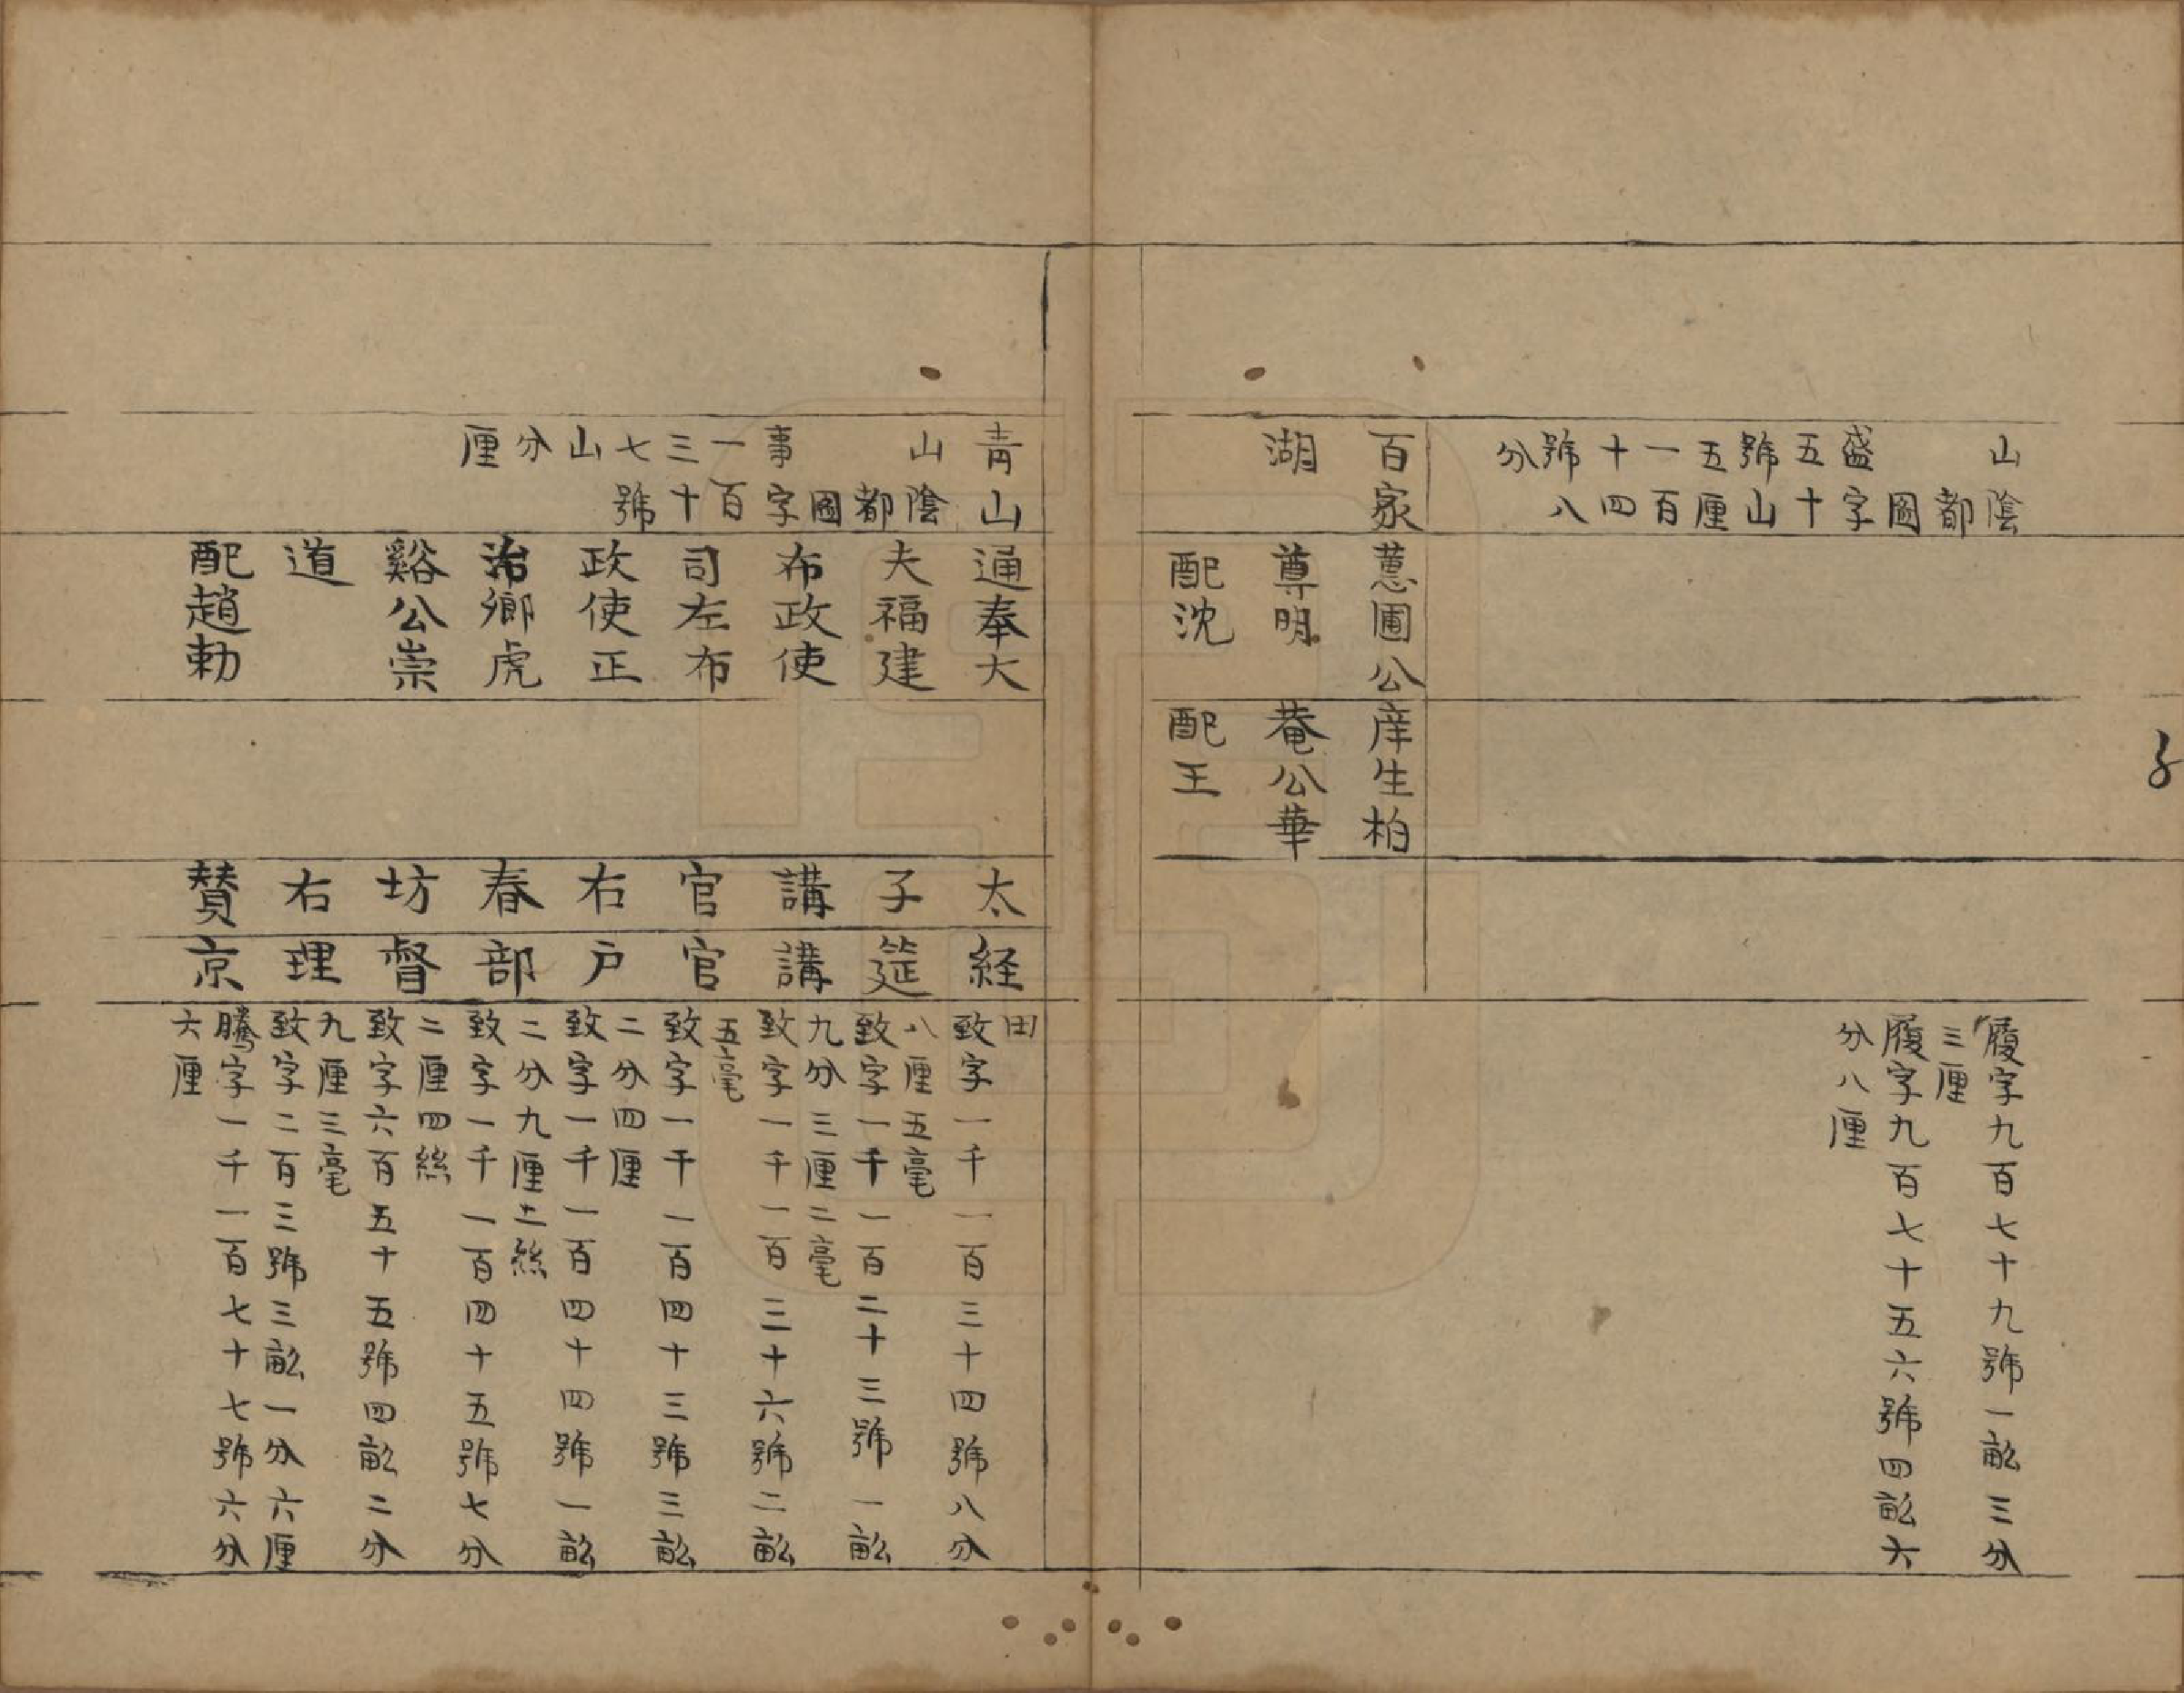 山陰
都
圖
盛字
五十
號山
五厘
一百
十四
號八
分
百家
湖
蕙圃公
尊明
配沈
庠生柏
菴公華
配王
履字九百七十九號一畝三分
三厘
履字九百七十五六號四畝六
分八厘
青山
山陰
都
圖
事字
一百
三十
七號
山
分
厘
通奉大
夫福建
布政使
司左布
政使正
治卿虎
谿公崇
道
配趙勅
太子講官右春坊右賛
経筵講官户部督理京
田
致字一千一百三十四號八分
八厘五毫
致字一千一百二十三號一畝
九分三厘二毫
致字一千一百三十六號二畝
五毫
致字一千一百四十三號三畝
二分四厘
致字一千一百四十四號一畝
二分九厘二絲
致字一千一百四十五號七分
二厘四絲
致字六百五十五號四畝二分
九厘三毫
致字二百三號三畝一分六厘
騰字一千一百七十七號六分
六厘